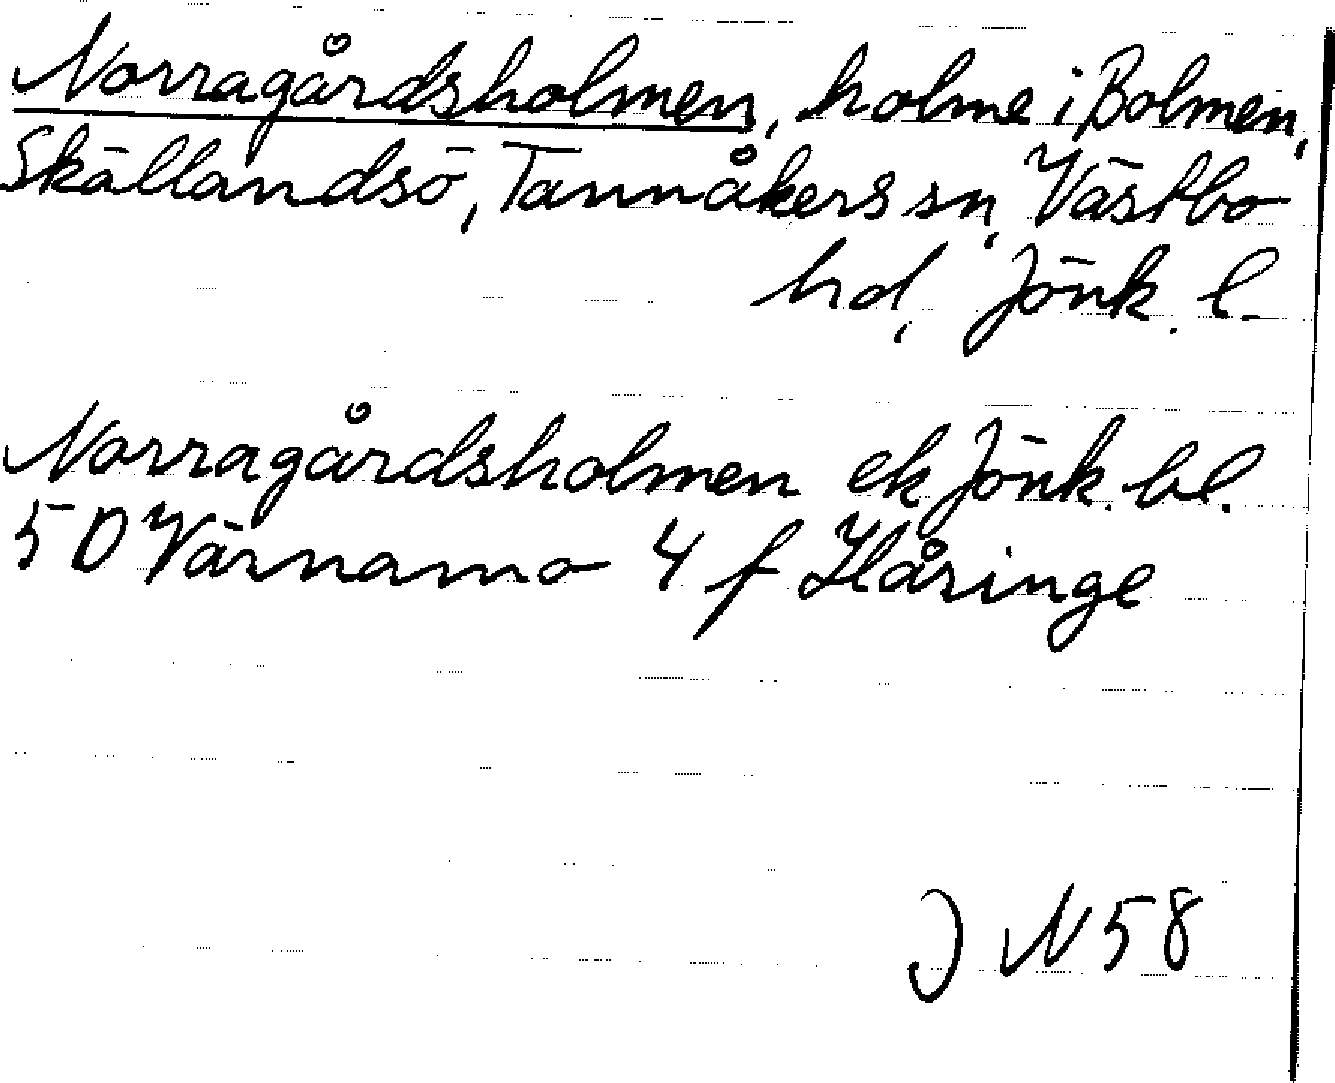 Norragårdsholmen, holme i Bolmen,
Skällandsö, Tannåkers sn, Västbo
hd, Jönk. l.
Norragårdsholmen ek Jönk. bl.
5D Värnamo 4 f Håringe
J N 58